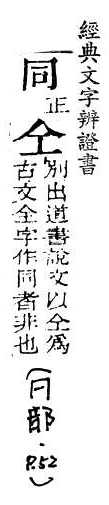 經典文字辨證書
同正
仝別出道書說文以仝為
古文全字作同者非也
(冂部.P.52)